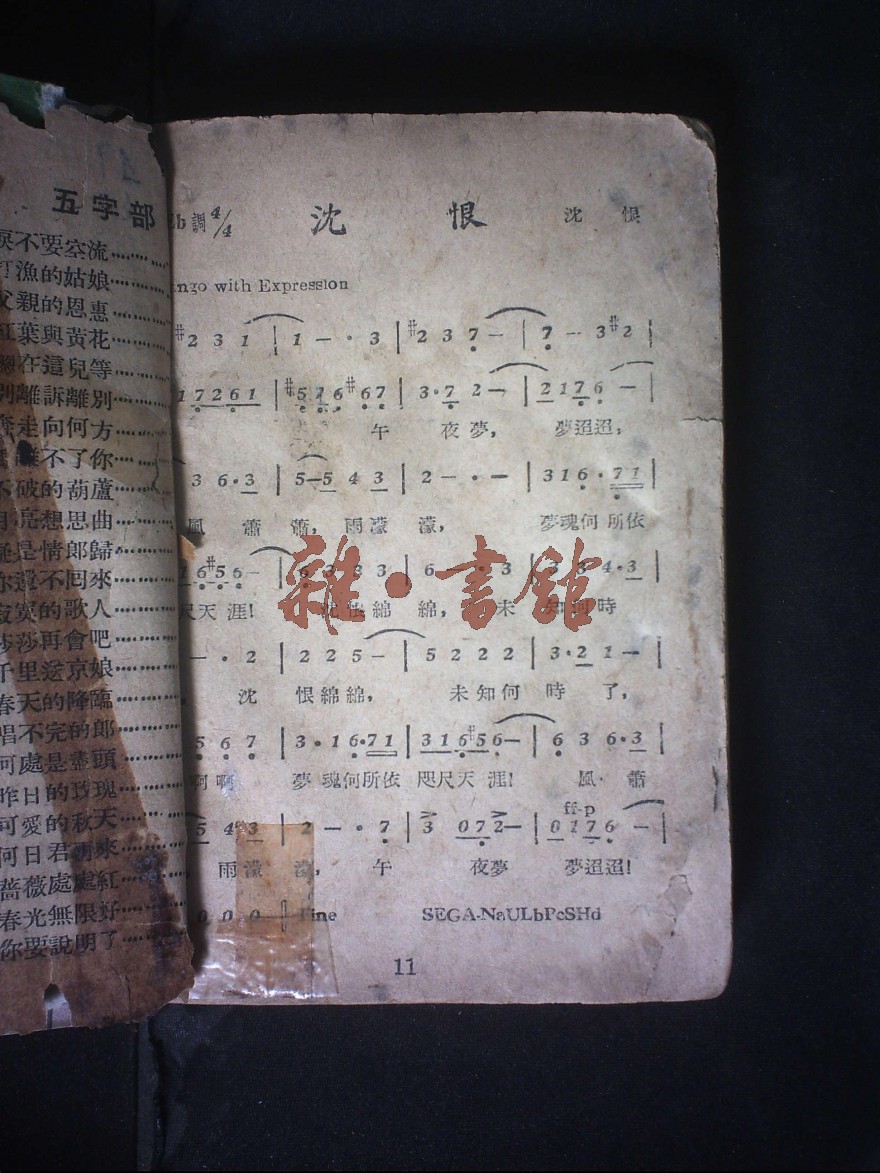 五字部
淚不要空流
漁的姑娘
父親的恩惠
紅葉與黃花
在這兒等
別離訴離別
奔走向何方
離不了你
不破的葫蘆
月亮想思曲
疑是情郎歸
你還不囘來
寂寞的歌人
莎莎再會吧
千里送京娘
春天的降臨
唱不完的郎
何處是盡頭
昨日的玫瑰
可愛的秋天
何日君再來
薔薇處處紅
春光無限好
你要說明了
b調4/4 沈恨 沈恨
ngo with Expression
#2 3 1 | 1 — · 3 | #2 3 7 — | 7 — 3 #2 |
1 7 2 6 1 | #5 7 6 #6 7 | 3 · 7 2 — | 2 1 7 6 — |
午 夜夢， 夢迢迢，
3 6 · 3 | 5 — 5 4 3 | 2 — · — | 3 1 6 · 7 1 |
風 蕭 蕭，雨濛 濛， 夢魂何所依
1 6 #5 6 — | 6 3 3 3 | 6 — · 3 | 3 3 4 · 3 |
尺天涯！ 沈恨綿 綿， 未 知何時
— · 2 | 2 2 5 — | 5 2 2 2 | 3 · 2 1 — |
沈 恨綿綿， 未知何 時 了，
5 6 7 | 3 · 1 6 · 7 1 | 3 1 6 #5 6 — | 6 3 6 · 3 |
啊啊 夢魂何所依 咫尺天涯！ 風 蕭
ff-p
5 4 3 | 2 — · 7 | 3 0 7 2 — | 0 1 7 6 — |
雨濛 濛， 午 夜夢 夢迢迢！
0 0 0 Fine SEGA-NaULbPcSHd
11
雜·書館